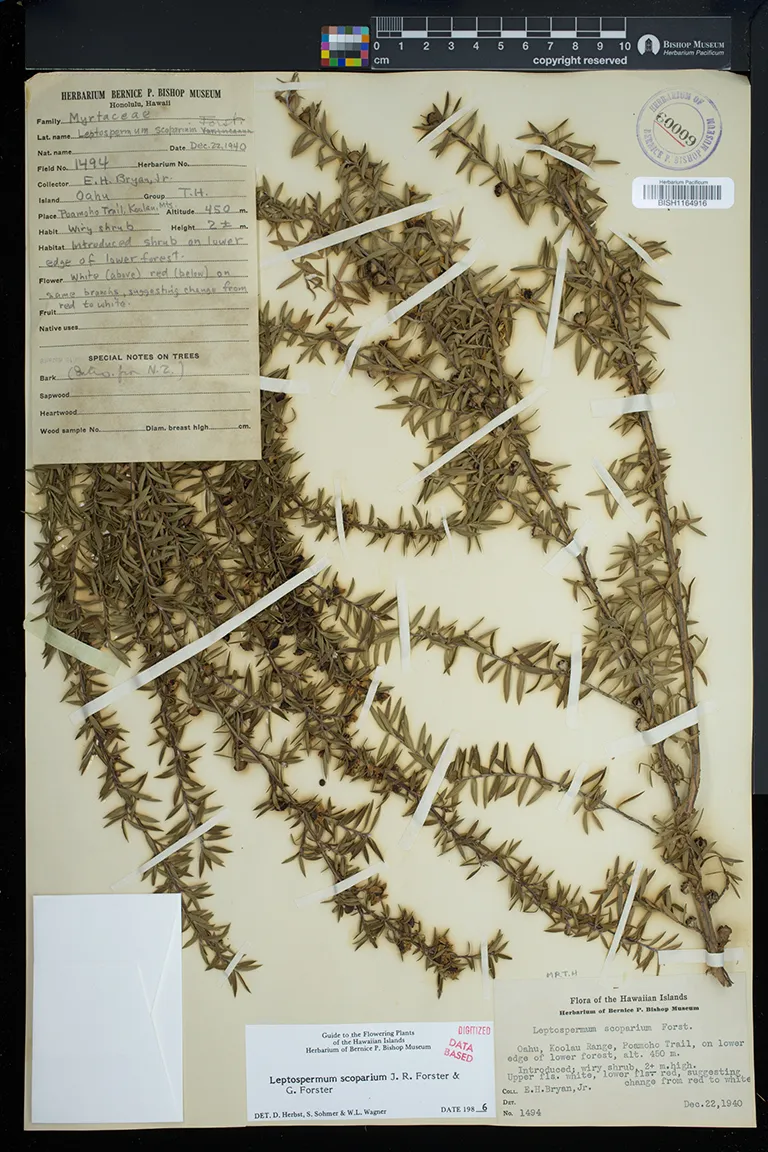 0 1 2 3 4 5 6 7 8 9 10
cm
copyright reserved
BISHOP MUSEUM
Herbarium Pacificum
HERBARIUM BERNICE P. BISHOP MUSEUM
Honolulu, Hawaii
Family Myrtaceae
Forst.
Lat. name Leptospermum scoparium
Nat. name Date Dec. 22, 1940
Field No. 1494 Herbarium No.
Collector E.H. Bryan, Jr.
Island Oahu Group T.H.
Place Poamoho Trail, Koolau, Mts. Altitude 450 m.
Habit Wiry shrub Height 2± m.
Habitat Introduced shrub on lower
edge of lower forest.
Flower White (above) red (below) on
same branchs, suggesting change from
red to white.
Fruit
Native uses
SPECIAL NOTES ON TREES
Bark from N.Z.]
Sapwood
Heartwood
Wood sample No. Diam. breast high cm.
HERBARIUM OF
60009
BERNICE P. BISHOP MUSEUM
Herbarium Pacificum
BISH1164916
Guide to the Flowering Plants
of the Hawaiian Islands
Herbarium of Bernice P. Bishop Museum
DIGITIZED
DATA
BASED
Leptospermum scoparium J. R. Forster &
G. Forster
DET. D. Herbst, S. Sohmer & W.L. Wagner DATE 198 6
Flora of the Hawaiian Islands
Herbarium of Bernice P. Bishop Museum
Leptospermum scoparium Forst.
Oahu, Koolau Range, Poamoho Trail, on lower
edge of lower forest, alt. 450 m.
Introduced; wiry shrub, 2+ m. high.
Upper fls. white, lower fls. red, suggesting
change from red to white
COLL. E.H.Bryan, Jr.
DET.
No. 1494 Dec.22,1940